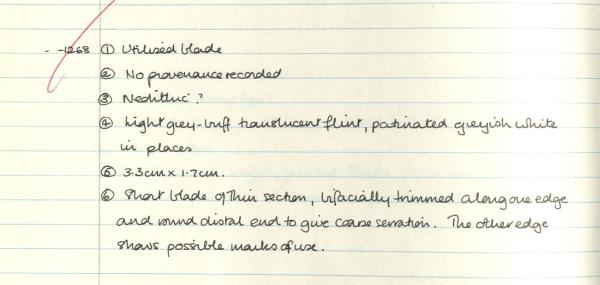 - -1268 ① Utilised blade
② No provenance recorded
③ Neolithic?
④ Light grey-buff translucent flint, patinated greyish white
in places
⑤ 3.3cm x 1.7cm.
⑥ Short blade of thin section, bifacially trimmed along one edge
and round distal end to give coarse serration. The other edge
shows possible marks of use.